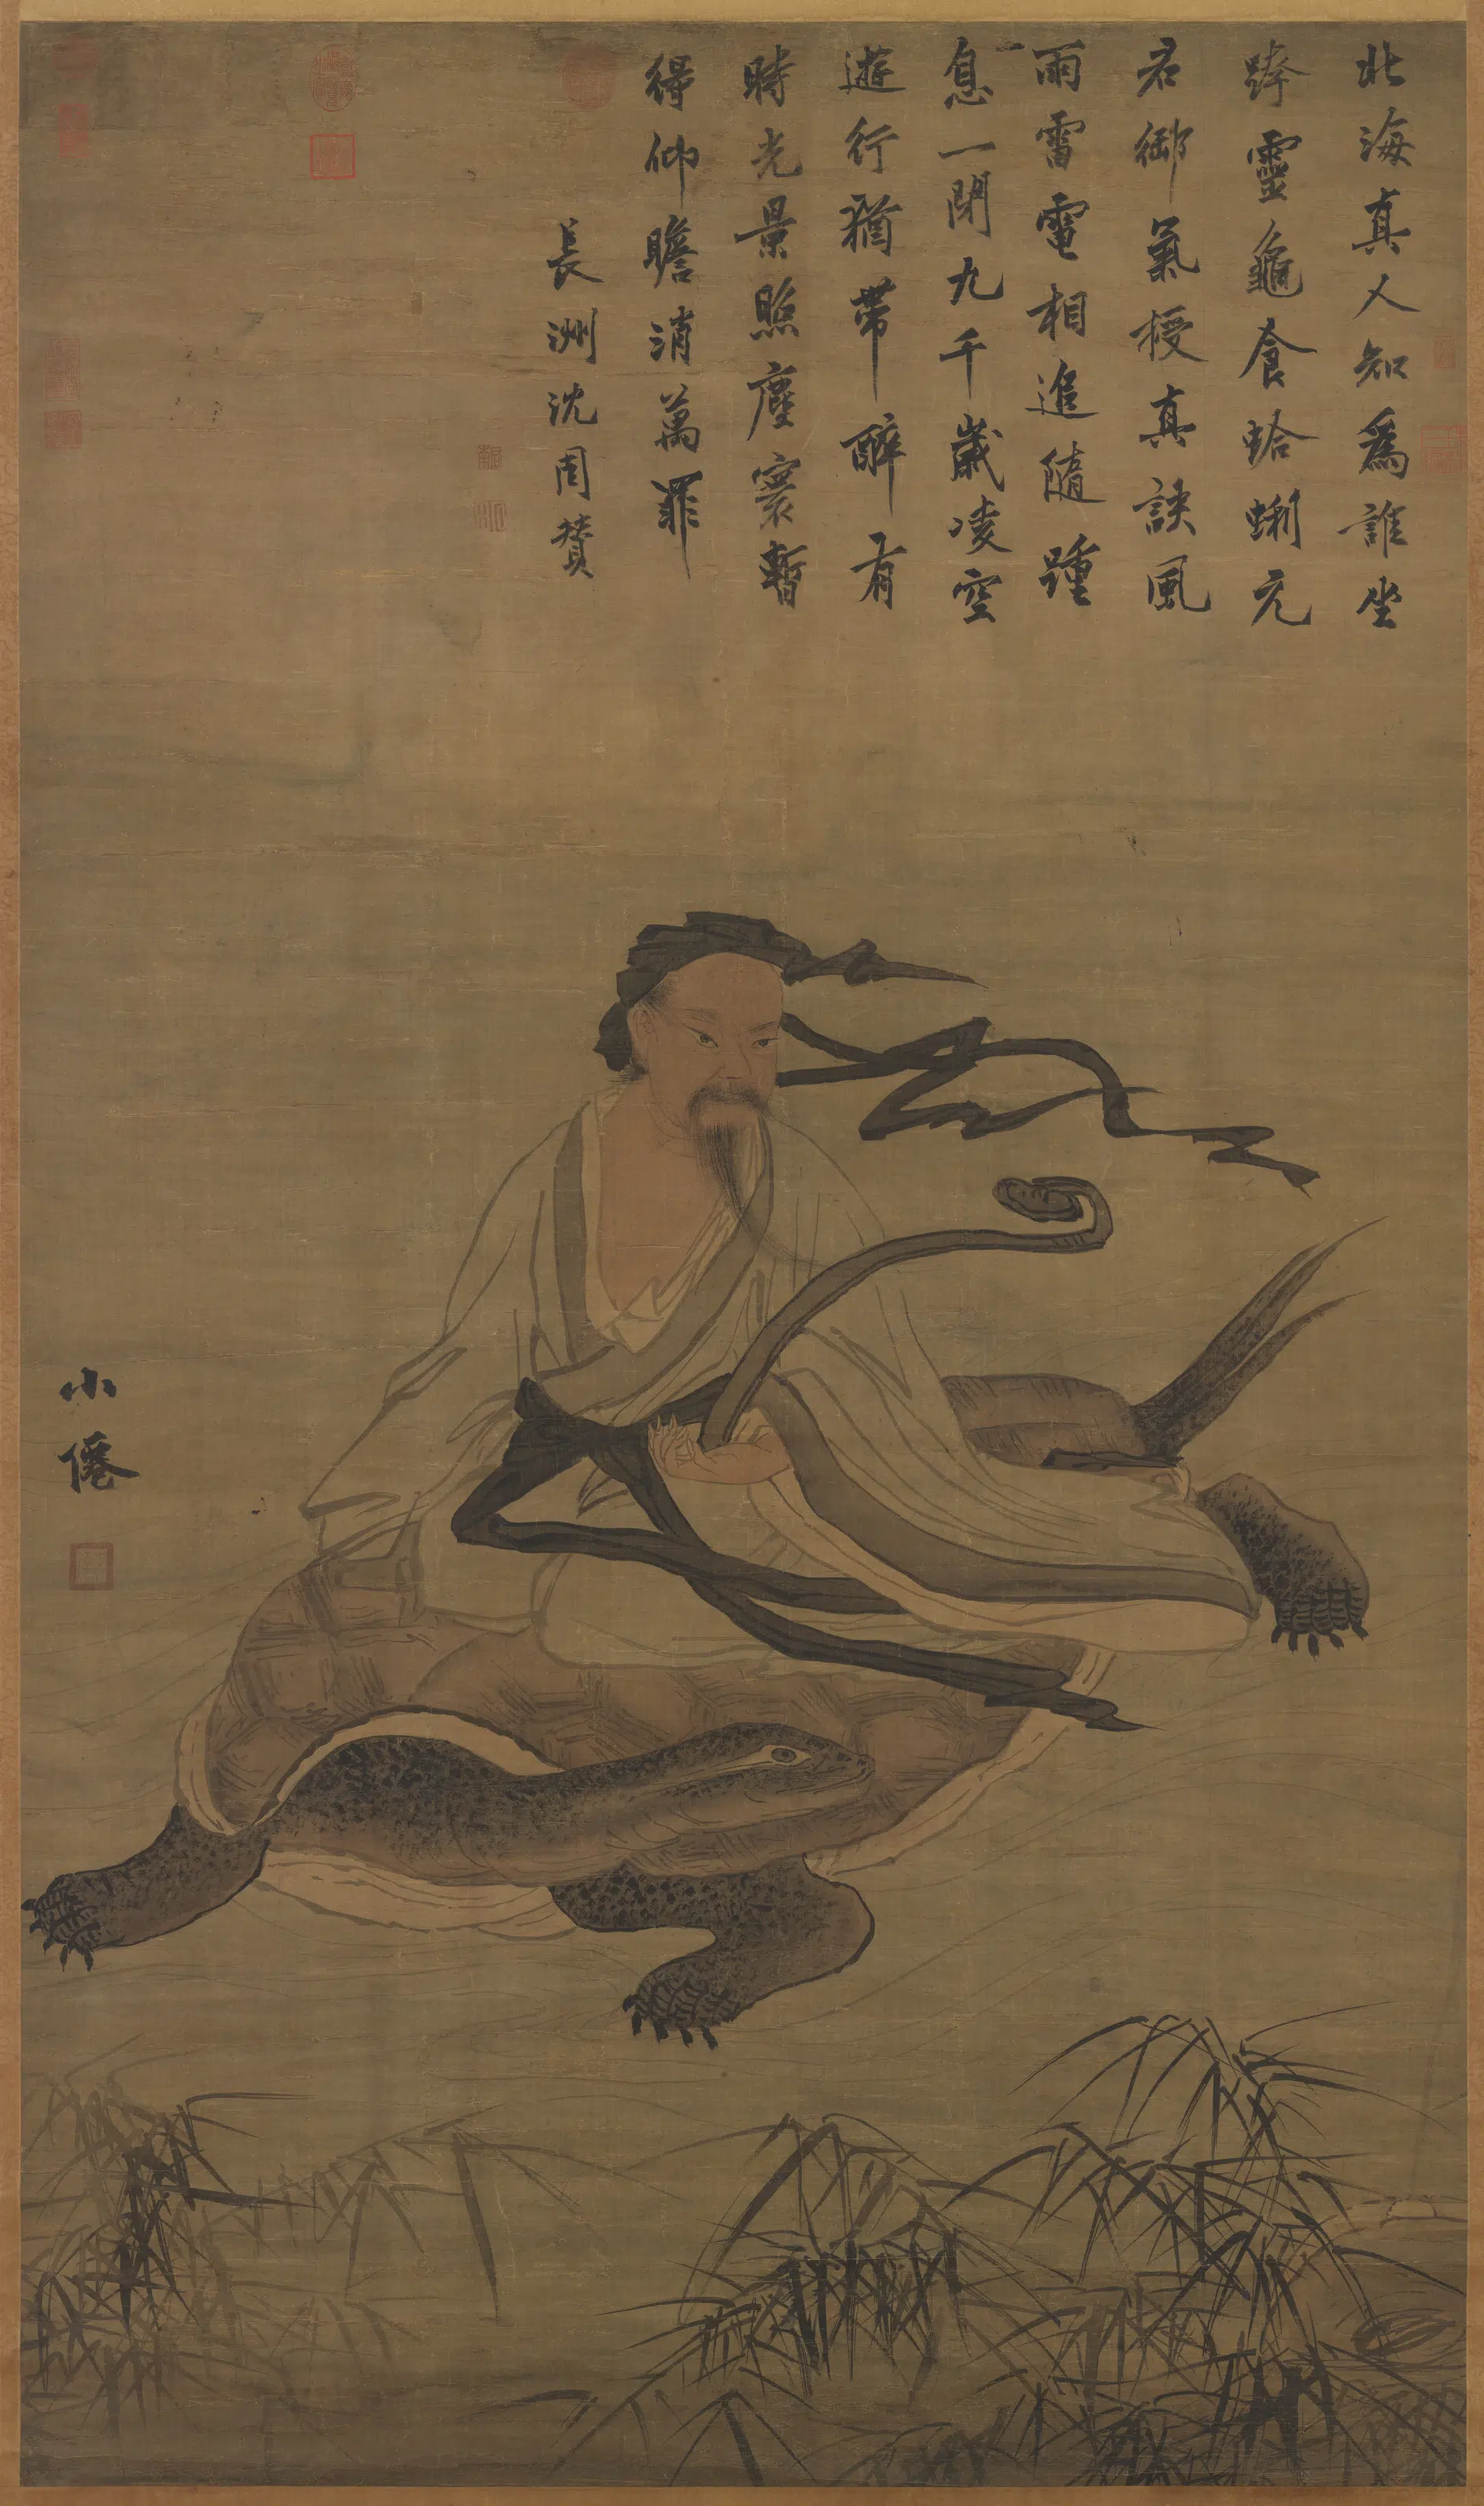 北海真人知爲誰坐
跨靈龜食蛤蜊元
君御氣授真訣風
雨雷電相追隨踵
息一閉九千歲凌空
遊行猶帶醉有
時光景照塵寰暫
得仰瞻消萬罪
長洲沈周贊
小僊